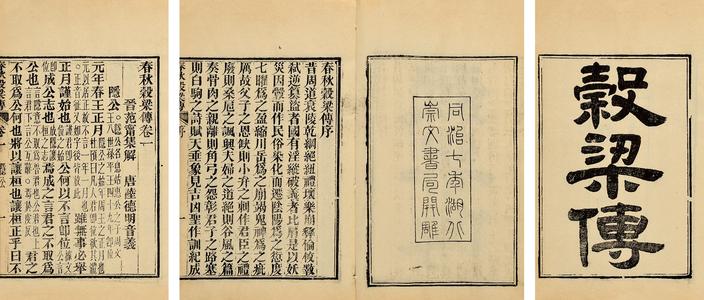 穀梁傳
同治七年湖北
崇文書局開雕
春秋穀梁傳序
昔周道衰陵乾綱絕紐禮壞樂崩彝倫攸斁
弒逆篡盜者國有淫縱破義者比肩是以妖
災因釁而作民俗染化而遷陰陽為之愆度
七曜為之盈縮川岳為之崩竭鬼神為之疵
厲故父子之恩缺則小弁之刺作君臣之禮
廢則桑扈之諷興夫婦之道絕則谷風之篇
奏骨肉之親離則角弓之怨彰君子之路塞
則白駒之詩賦天垂象見吉凶聖作訓紀成
春秋穀梁傳 序 一
春秋穀梁傳卷一
晉范甯集解 唐陸德明音義
隱公
元年春王正月
雖無事必舉
正月謹始也 公何以不言即位
成公志也 焉成之言君之不取為
公也 君之
不取為公何也將以讓桓也讓桓正乎曰不
春秋穀梁傳 卷一 隱公 一